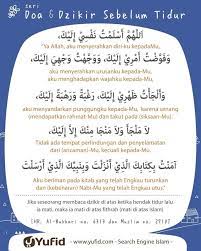 Seri
Doa & Dzikir Sebelum Tidur
اَللّٰهُمَّ أَسْلَمْتُ نَفْسِيْ إِلَيْكَ،
"Ya Allah, aku menyerahkan diri-ku kepada-Mu,
وَفَوَّضْتُ أَمْرِيْ إِلَيْكَ، وَوَجَّهْتُ وَجْهِيَ إِلَيْكَ
aku menyerahkan urusanku kepada-Mu,
aku menghadapkan wajahku kepada-Mu,
وَأَلْجَأْتُ ظَهْرِيْ إِلَيْكَ، رَغْبَةً وَرَهْبَةً إِلَيْكَ
aku menyandarkan punggungku kepada-Mu, karena senang
(mendapatkan rahmat-Mu) dan takut pada (siksaan-Mu)
لَا مَلْجَأَ وَلَا مَنْجَا مِنْكَ إِلَّا إِلَيْكَ،
Tidak ada tempat perlindungan dan penyelamatan
dari (ancaman)-Mu, kecuali kepada-Mu.
آمَنْتُ بِكِتَابِكَ الَّذِيْ أَنْزَلْتَ وَبِنَبِيِّكَ الَّذِيْ أَرْسَلْتَ
Aku beriman pada kitab yang telah Engkau turunkan
dan (kebenaran) Nabi-Mu yang telah Engkau utus."
Jika seseorang membaca dzikir di atas ketika hendak tidur lalu
ia mati, maka ia mati di atas fithrah (mati di atas Islam)
(HR. Al-Bukhari no. 6313 dan Muslim no. 2710)
YUFID
www.yufid.com - Search Engine Islam -